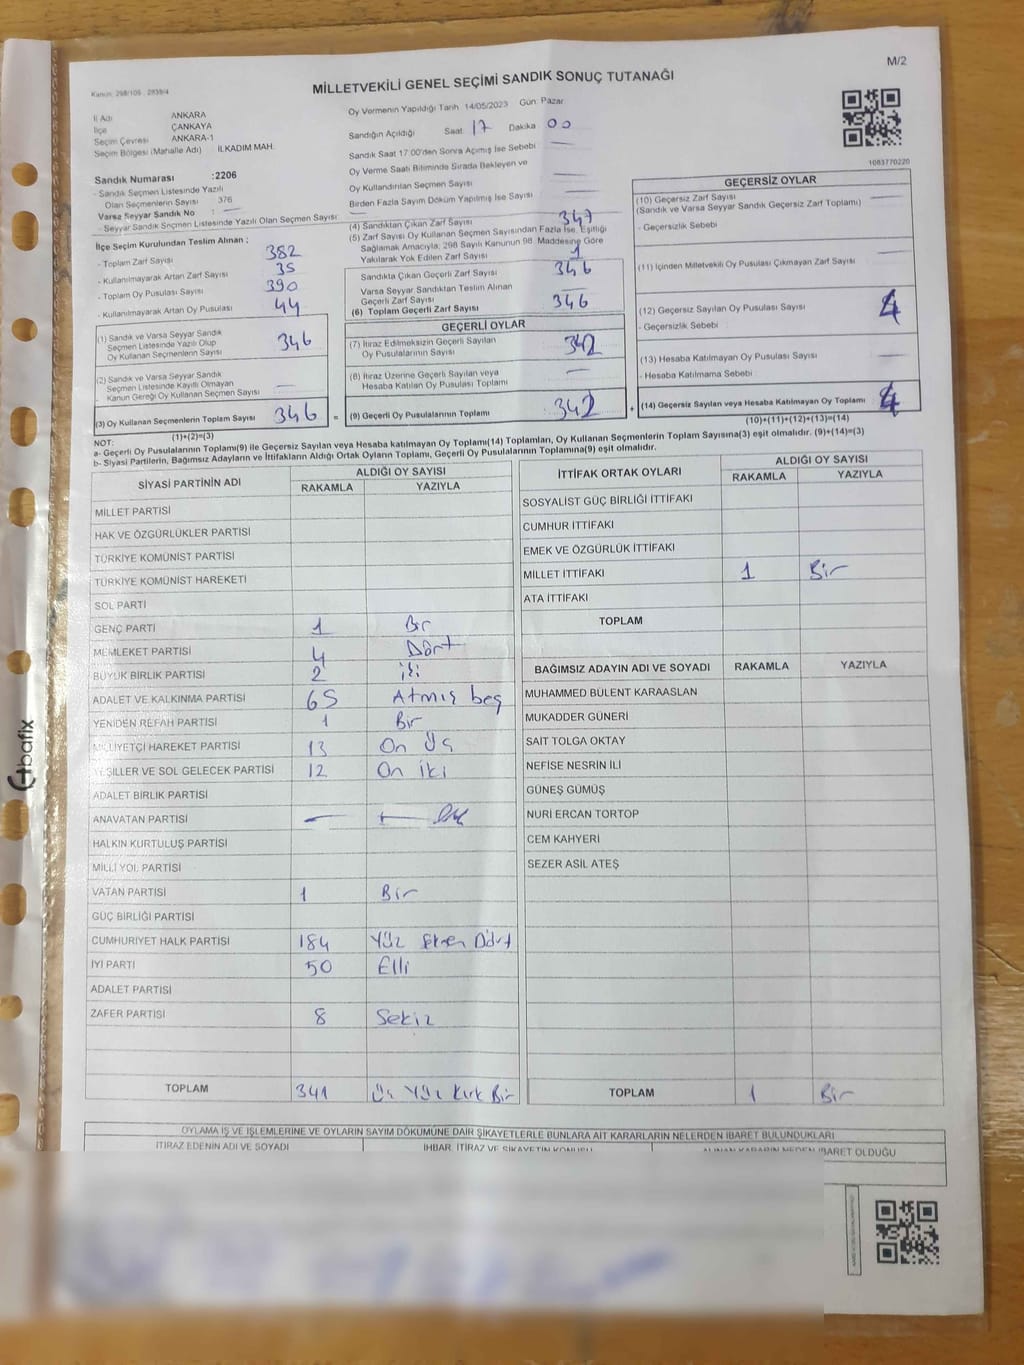 M/2
MİLLETVEKİLİ GENEL SEÇİMİ SANDIK SONUÇ TUTANAĞI
Kanun: 298/105 , 2839/4
İl Adı ANKARA
İlçe ÇANKAYA
Seçim Çevresi ANKARA-1
Seçim Bölgesi (Mahalle Adı) İLKADIM MAH.
Sandık Numarası :2206
- Sandık Seçmen Listesinde Yazılı
Olan Seçmenlerin Sayısı 376
Varsa Seyyar Sandık No : —
- Seyyar Sandık Seçmen Listesinde Yazılı Olan Seçmen Sayısı —
Oy Vermenin Yapıldığı Tarih 14/05/2023 Gün: Pazar
Sandığın Açıldığı Saat 17 Dakika 00
Sandık Saat 17:00'den Sonra Açımış İse Sebebi —
Oy Verme Saati Bitiminde Sırada Bekleyen ve
Oy Kullandırılan Seçmen Sayısı —
Birden Fazla Sayım Döküm Yapılmış İse Sayısı —
1083770220
İlçe Seçim Kurulundan Teslim Alınan ;
- Toplam Zarf Sayısı 382
- Kullanılmayarak Artan Zarf Sayısı 35
- Toplam Oy Pusulası Sayısı 390
- Kullanılmayarak Artan Oy Pusulası 44
(1) Sandık ve Varsa Seyyar Sandık
Seçmen Listesinde Yazılı Olup
Oy Kullanan Seçmenlerin Sayısı 346
(2) Sandık ve Varsa Seyyar Sandık
Seçmen Listesinde Kayıtlı Olmayan
Kanun Gereği Oy Kullanan Seçmen Sayısı —
(3) Oy Kullanan Seçmenlerin Toplam Sayısı 346 =
(1)+(2)=(3)
(4) Sandıktan Çıkan Zarf Sayısı 347
(5) Zarf Sayısı Oy Kullanan Seçmen Sayısından Fazla İse, Eşitliği
Sağlamak Amacıyla, 298 Sayılı Kanunun 98. Maddesine Göre
Yakılarak Yok Edilen Zarf Sayısı 1
Sandıkta Çıkan Geçerli Zarf Sayısı 346
Varsa Seyyar Sandıktan Teslim Alınan
Geçerli Zarf Sayısı —
(6) Toplam Geçerli Zarf Sayısı 346
GEÇERLİ OYLAR
(7) İtiraz Edilmeksizin Geçerli Sayılan
Oy Pusulalarının Sayısı 342
(8) İtiraz Üzerine Geçerli Sayılan veya
Hesaba Katılan Oy Pusulası Toplamı —
(9) Geçerli Oy Pusulalarının Toplamı 342 +
GEÇERSİZ OYLAR
(10) Geçersiz Zarf Sayısı —
(Sandık ve Varsa Seyyar Sandık Geçersiz Zarf Toplamı)
- Geçersizlik Sebebi
(11) İçinden Milletvekili Oy Pusulası Çıkmayan Zarf Sayısı —
(12) Geçersiz Sayılan Oy Pusulası Sayısı 4
- Geçersizlik Sebebi
(13) Hesaba Katılmayan Oy Pusulası Sayısı —
- Hesaba Katılmama Sebebi
(14) Geçersiz Sayılan veya Hesaba Katılmayan Oy Toplamı 4
(10)+(11)+(12)+(13)=(14)
NOT:
a- Geçerli Oy Pusulalarının Toplamı(9) ile Geçersiz Sayılan veya Hesaba katılmayan Oy Toplamı(14) Toplamları, Oy Kullanan Seçmenlerin Toplam Sayısına(3) eşit olmalıdır. (9)+(14)=(3)
b- Siyasi Partilerin, Bağımsız Adayların ve İttifakların Aldığı Ortak Oyların Toplamı, Geçerli Oy Pusulalarının Toplamına(9) eşit olmalıdır.
SİYASİ PARTİNİN ADI ALDIĞI OY SAYISI
RAKAMLA YAZIYLA
MİLLET PARTİSİ
HAK VE ÖZGÜRLÜKLER PARTİSİ
TÜRKİYE KOMÜNİST PARTİSİ
TÜRKİYE KOMÜNİST HAREKETİ
SOL PARTİ
GENÇ PARTİ 1 Bir
MEMLEKET PARTİSİ 4 Dört
BÜYÜK BİRLİK PARTİSİ 2 iki
ADALET VE KALKINMA PARTİSİ 65 Atmış beş
YENİDEN REFAH PARTİSİ 1 Bir
MİLLİYETÇİ HAREKET PARTİSİ 13 On Üç
YEŞİLLER VE SOL GELECEK PARTİSİ 12 On iki
ADALET BİRLİK PARTİSİ
ANAVATAN PARTİSİ — —
HALKIN KURTULUŞ PARTİSİ
MİLLİ YOL PARTİSİ
VATAN PARTİSİ 1 Bir
GÜÇ BİRLİĞİ PARTİSİ
CUMHURİYET HALK PARTİSİ 184 Yüz seksen Dört
İYİ PARTİ 50 Elli
ADALET PARTİSİ
ZAFER PARTİSİ 8 Sekiz
TOPLAM 341 Üç Yüz Kırk Bir
İTTİFAK ORTAK OYLARI ALDIĞI OY SAYISI
RAKAMLA YAZIYLA
SOSYALİST GÜÇ BİRLİĞİ İTTİFAKI
CUMHUR İTTİFAKI
EMEK VE ÖZGÜRLÜK İTTİFAKI
MİLLET İTTİFAKI 1 Bir
ATA İTTİFAKI
TOPLAM
BAĞIMSIZ ADAYIN ADI VE SOYADI RAKAMLA YAZIYLA
MUHAMMED BÜLENT KARAASLAN
MUKADDER GÜNERİ
SAİT TOLGA OKTAY
NEFİSE NESRİN İLİ
GÜNEŞ GÜMÜŞ
NURİ ERCAN TORTOP
CEM KAHYERİ
SEZER ASİL ATEŞ
TOPLAM 1 Bir
OYLAMA İŞ VE İŞLEMLERİNE VE OYLARIN SAYIM DÖKÜMÜNE DAİR ŞİKAYETLERLE BUNLARA AİT KARARLARIN NELERDEN İBARET BULUNDUKLARI
İTİRAZ EDENİN ADI VE SOYADI İHBAR, İTİRAZ VE ŞİKAYETİN KONUSU ALINAN KARARIN NEDEN İBARET OLDUĞU
bafix